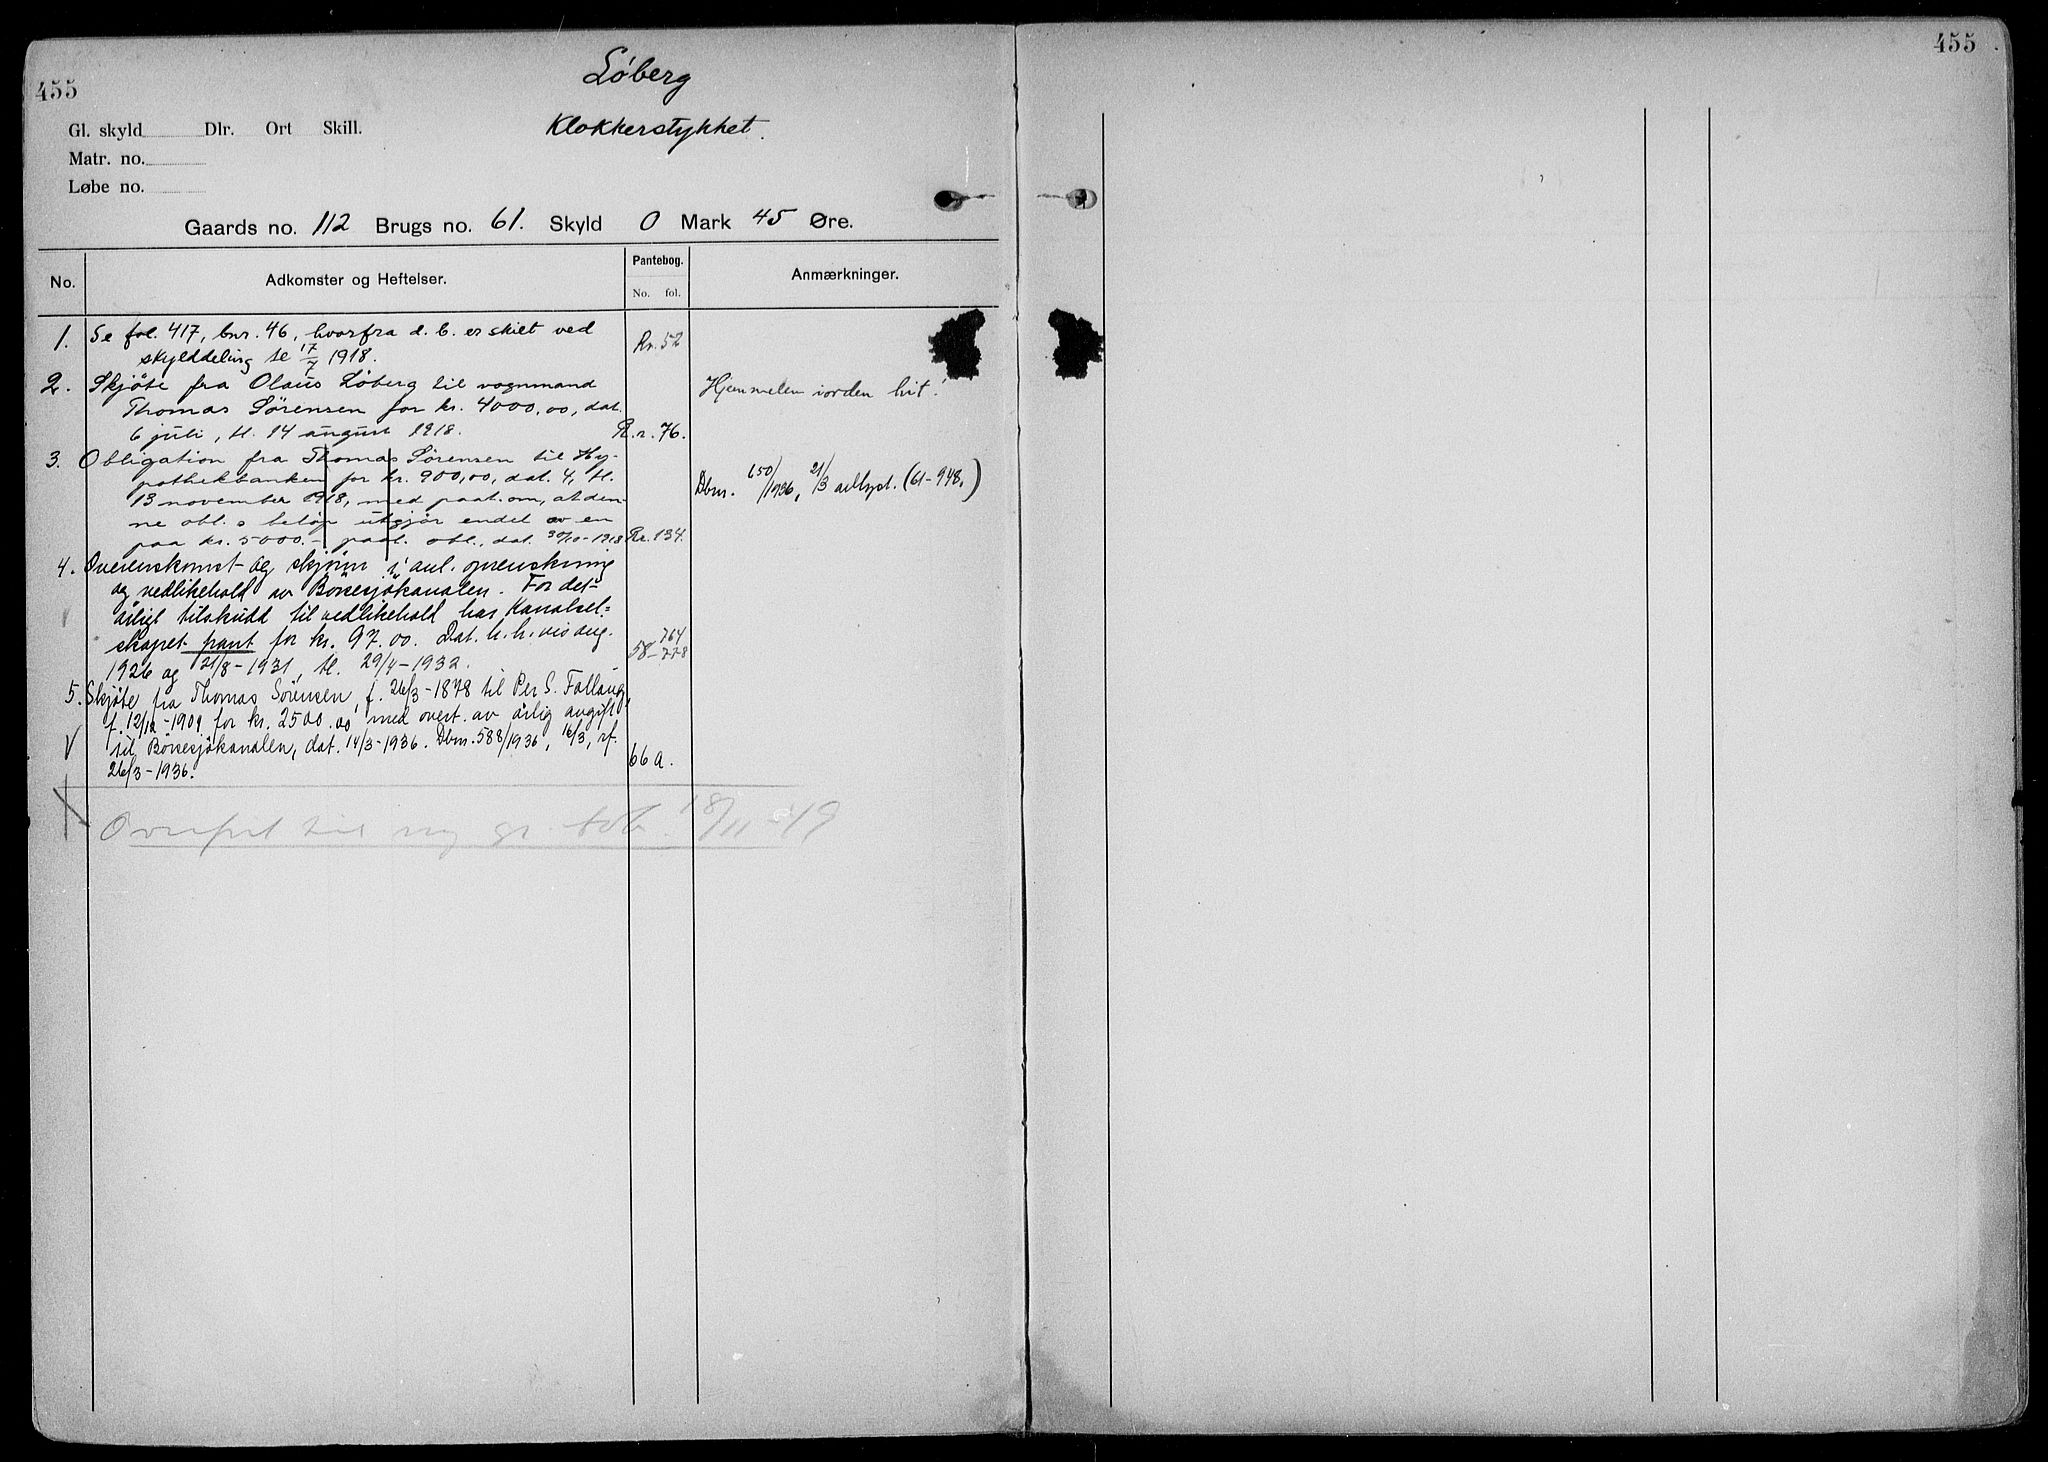 455
455
Løberg
Gl. skyld Dlr. Ort Skill.
Klokkerstykket.
Matr. no.
Løbe no.
Gaards no. 112 Brugs no. 61. Skyld 0 Mark 45 Øre.
No. Adkomster og Heftelser. Pantebog. No. fol. Anmærkninger.
1. Se fol. 417, bnr. 46, hvorfra d. b. er skilt ved
skylddeling tl 17/7 1918. Rr. 52
2. Skjöte fra Olaus Löberg til vognmand
Thomas Sörensen for kr. 4000,00, dat.
6 juli, tl. 14 august 1918. R.r. 76.
Hjemmelen i orden hit!
3. Obligation fra Thomas Sørensen til Hy-
pothekbanken for kr. 900,00, dat. 4, tl.
13 november 1918, med paat. om, at den-
ne obl.s beløp utgjør endel av en
paa kr. 5000.- paal. obl., dat. 30/10-1918 Rr. 134.
Dbnr. 650/1936, 21/3 avlyst. (61-948.)
4. Overenskomst og skjønn i anl. oprenskning
og vedlikehold av Börsesjökanalen. For det
årligt tilskudd til vedlikehold har Kanalsel=
skapet pant for kr. 97.00. Dat. h.h.vis aug.
1926 og 21/8-1931, tl. 29/4-1932. 58-764-778
5. Skjöte fra Thomas Sörensen, f. 26/3-1878 til Per S. Follaug,
f. 12/12-1909 for kr. 2500.00 med overt. av årlig avgift
til Börsesjökanalen, dat. 14/3-1936. Dbnr. 588/1936, 16/3, rf.
26/3-1936. 66a.
Overført til ny gr. bok 18/11 49